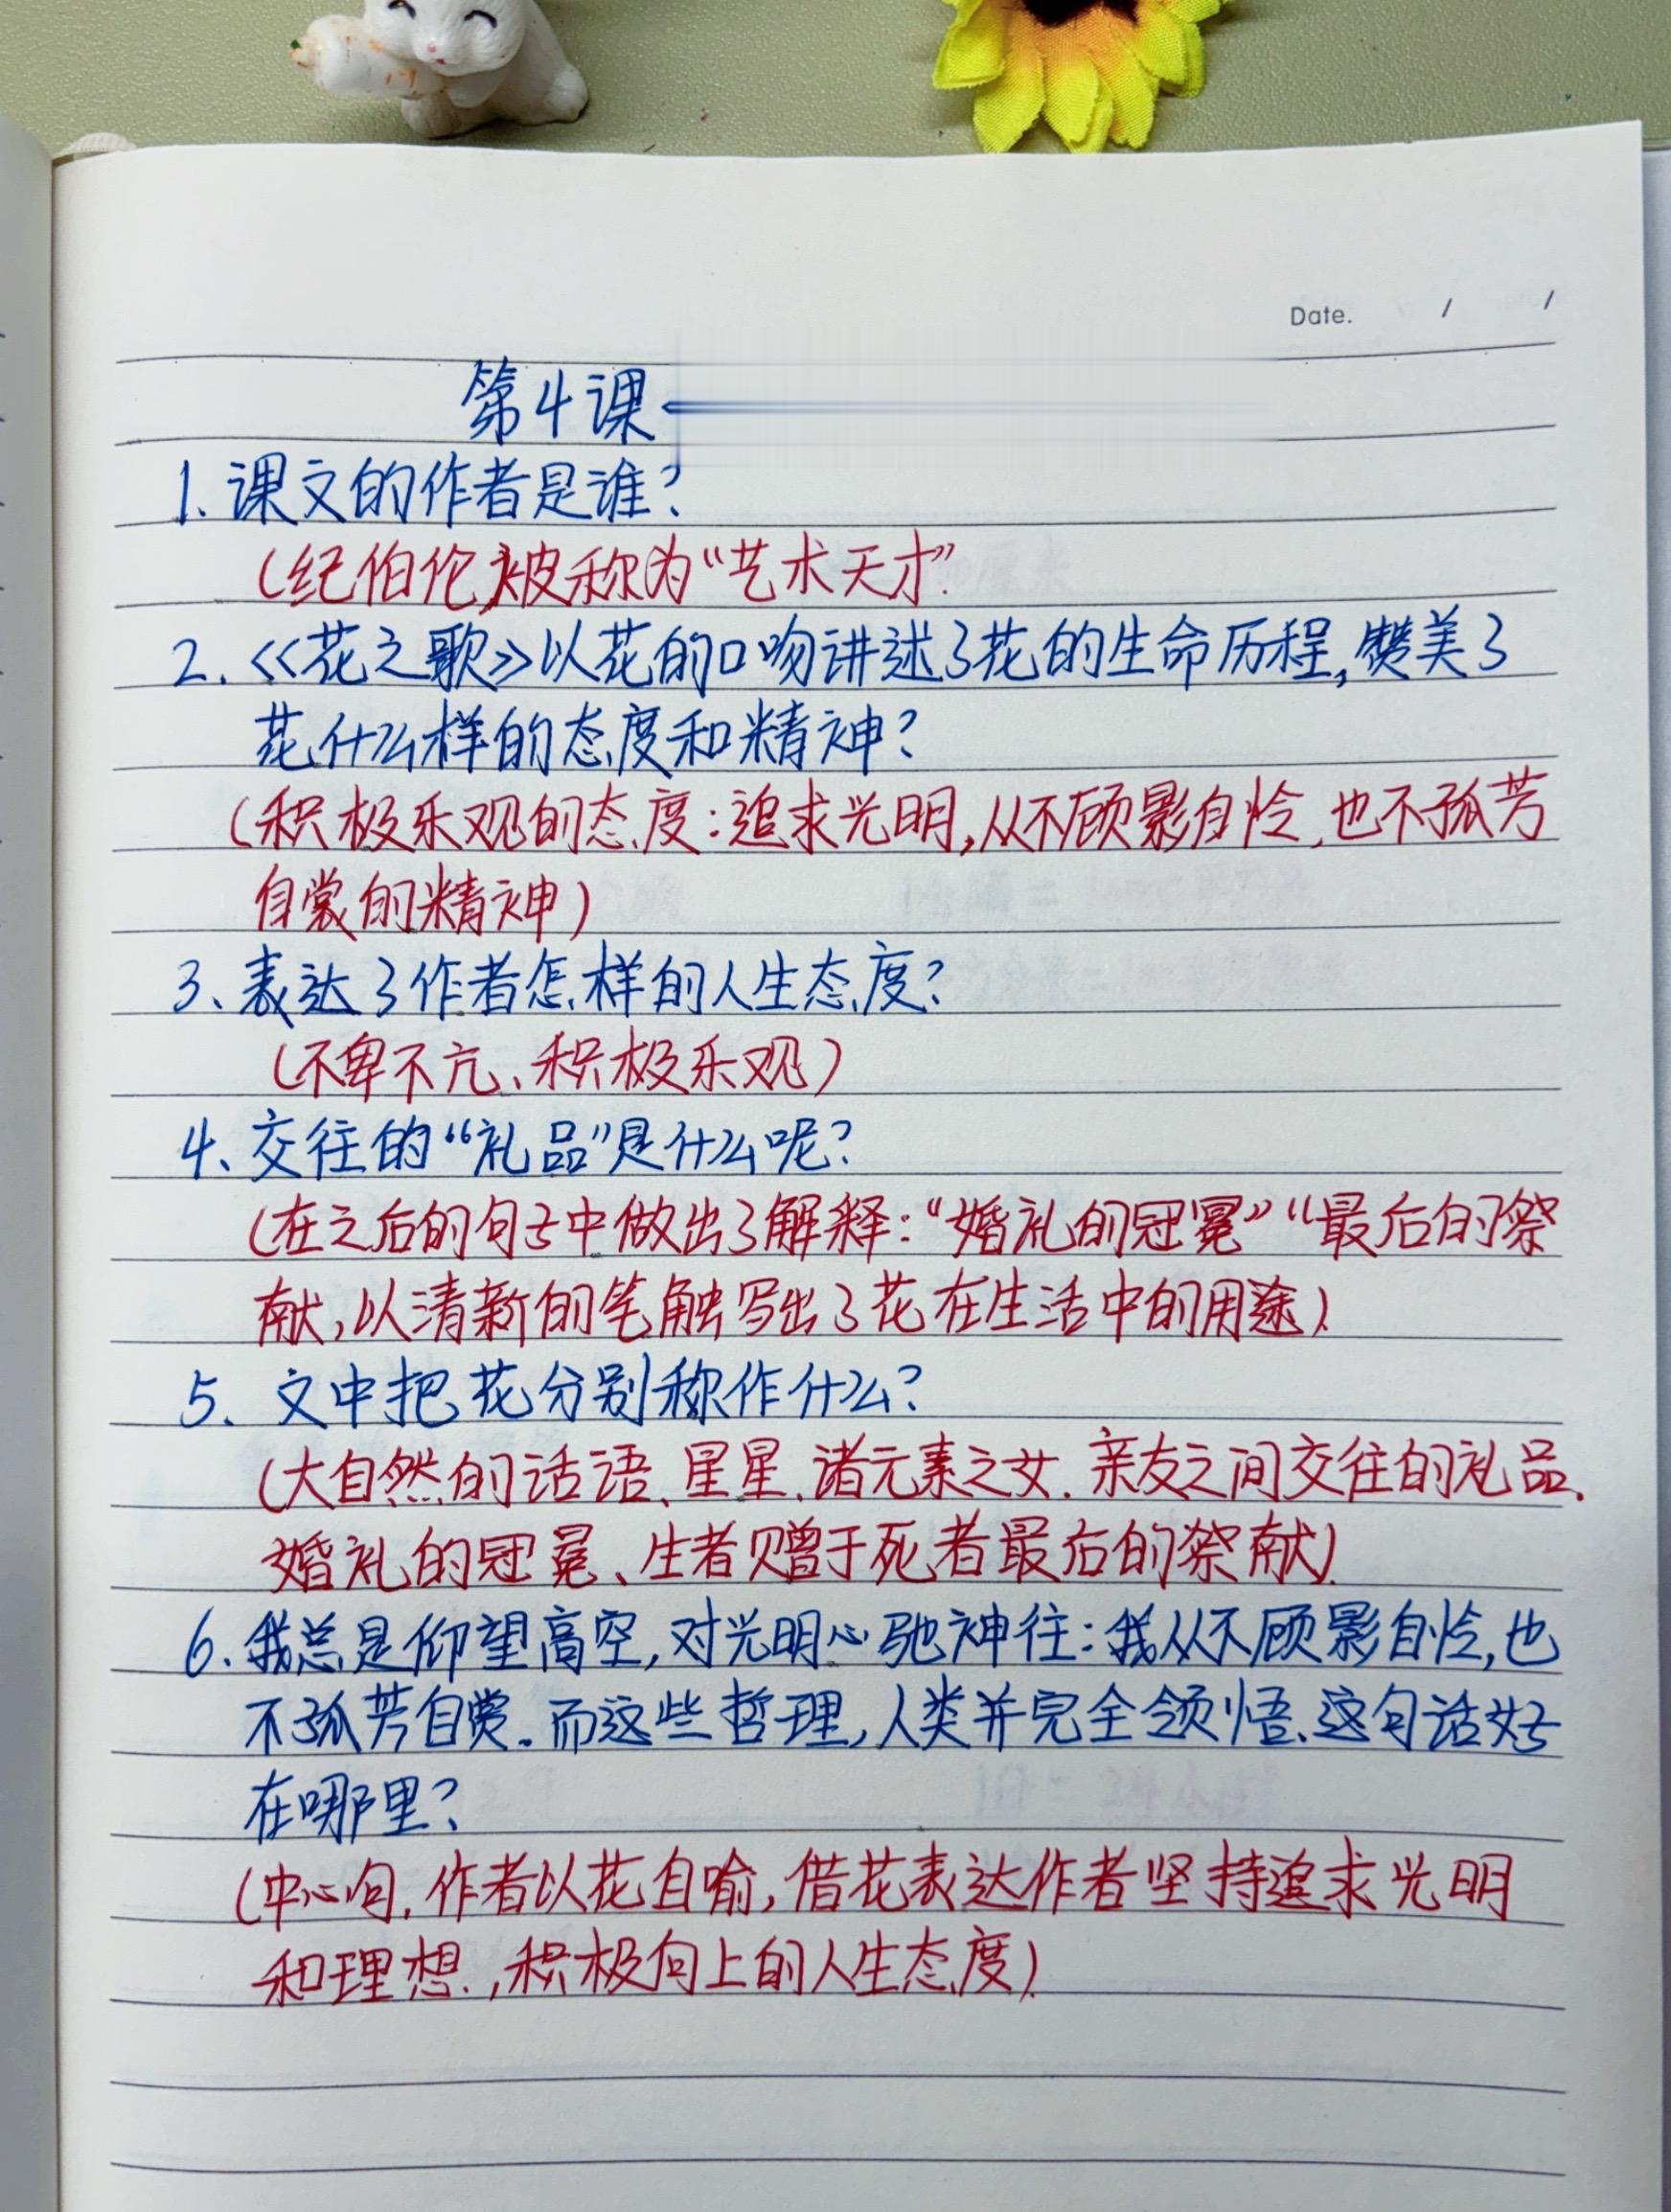 Date. / /
第4课
1、课文的作者是谁?
(纪伯伦,被称为“艺术天才”
2.《花之歌》以花的口吻讲述了花的生命历程,赞美了
花什么样的态度和精神?
(积极乐观的态度:追求光明,从不顾影自怜,也不孤芳
自赏的精神)
3、表达了作者怎样的人生态度?
(不卑不亢、积极乐观)
4、交往的“礼品”是什么呢?
(在之后的句子中做出了解释:“婚礼的冠冕”“最后的祭
献,以清新的笔触写出了花在生活中的用途)
5、文中把花分别称作什么?
(大自然的话语、星星、诸元素之女.亲友之间交往的礼品.
婚礼的冠冕、生者赠于死者最后的祭献)
6.我总是仰望高空,对光明心驰神往:我从不顾影自怜,也
不孤芳自赏.而这些哲理,人类并完全领悟、这句话好
在哪里?
(中心句.作者以花自喻,借花表达作者坚持追求光明
和理想.,积极向上的人生态度)